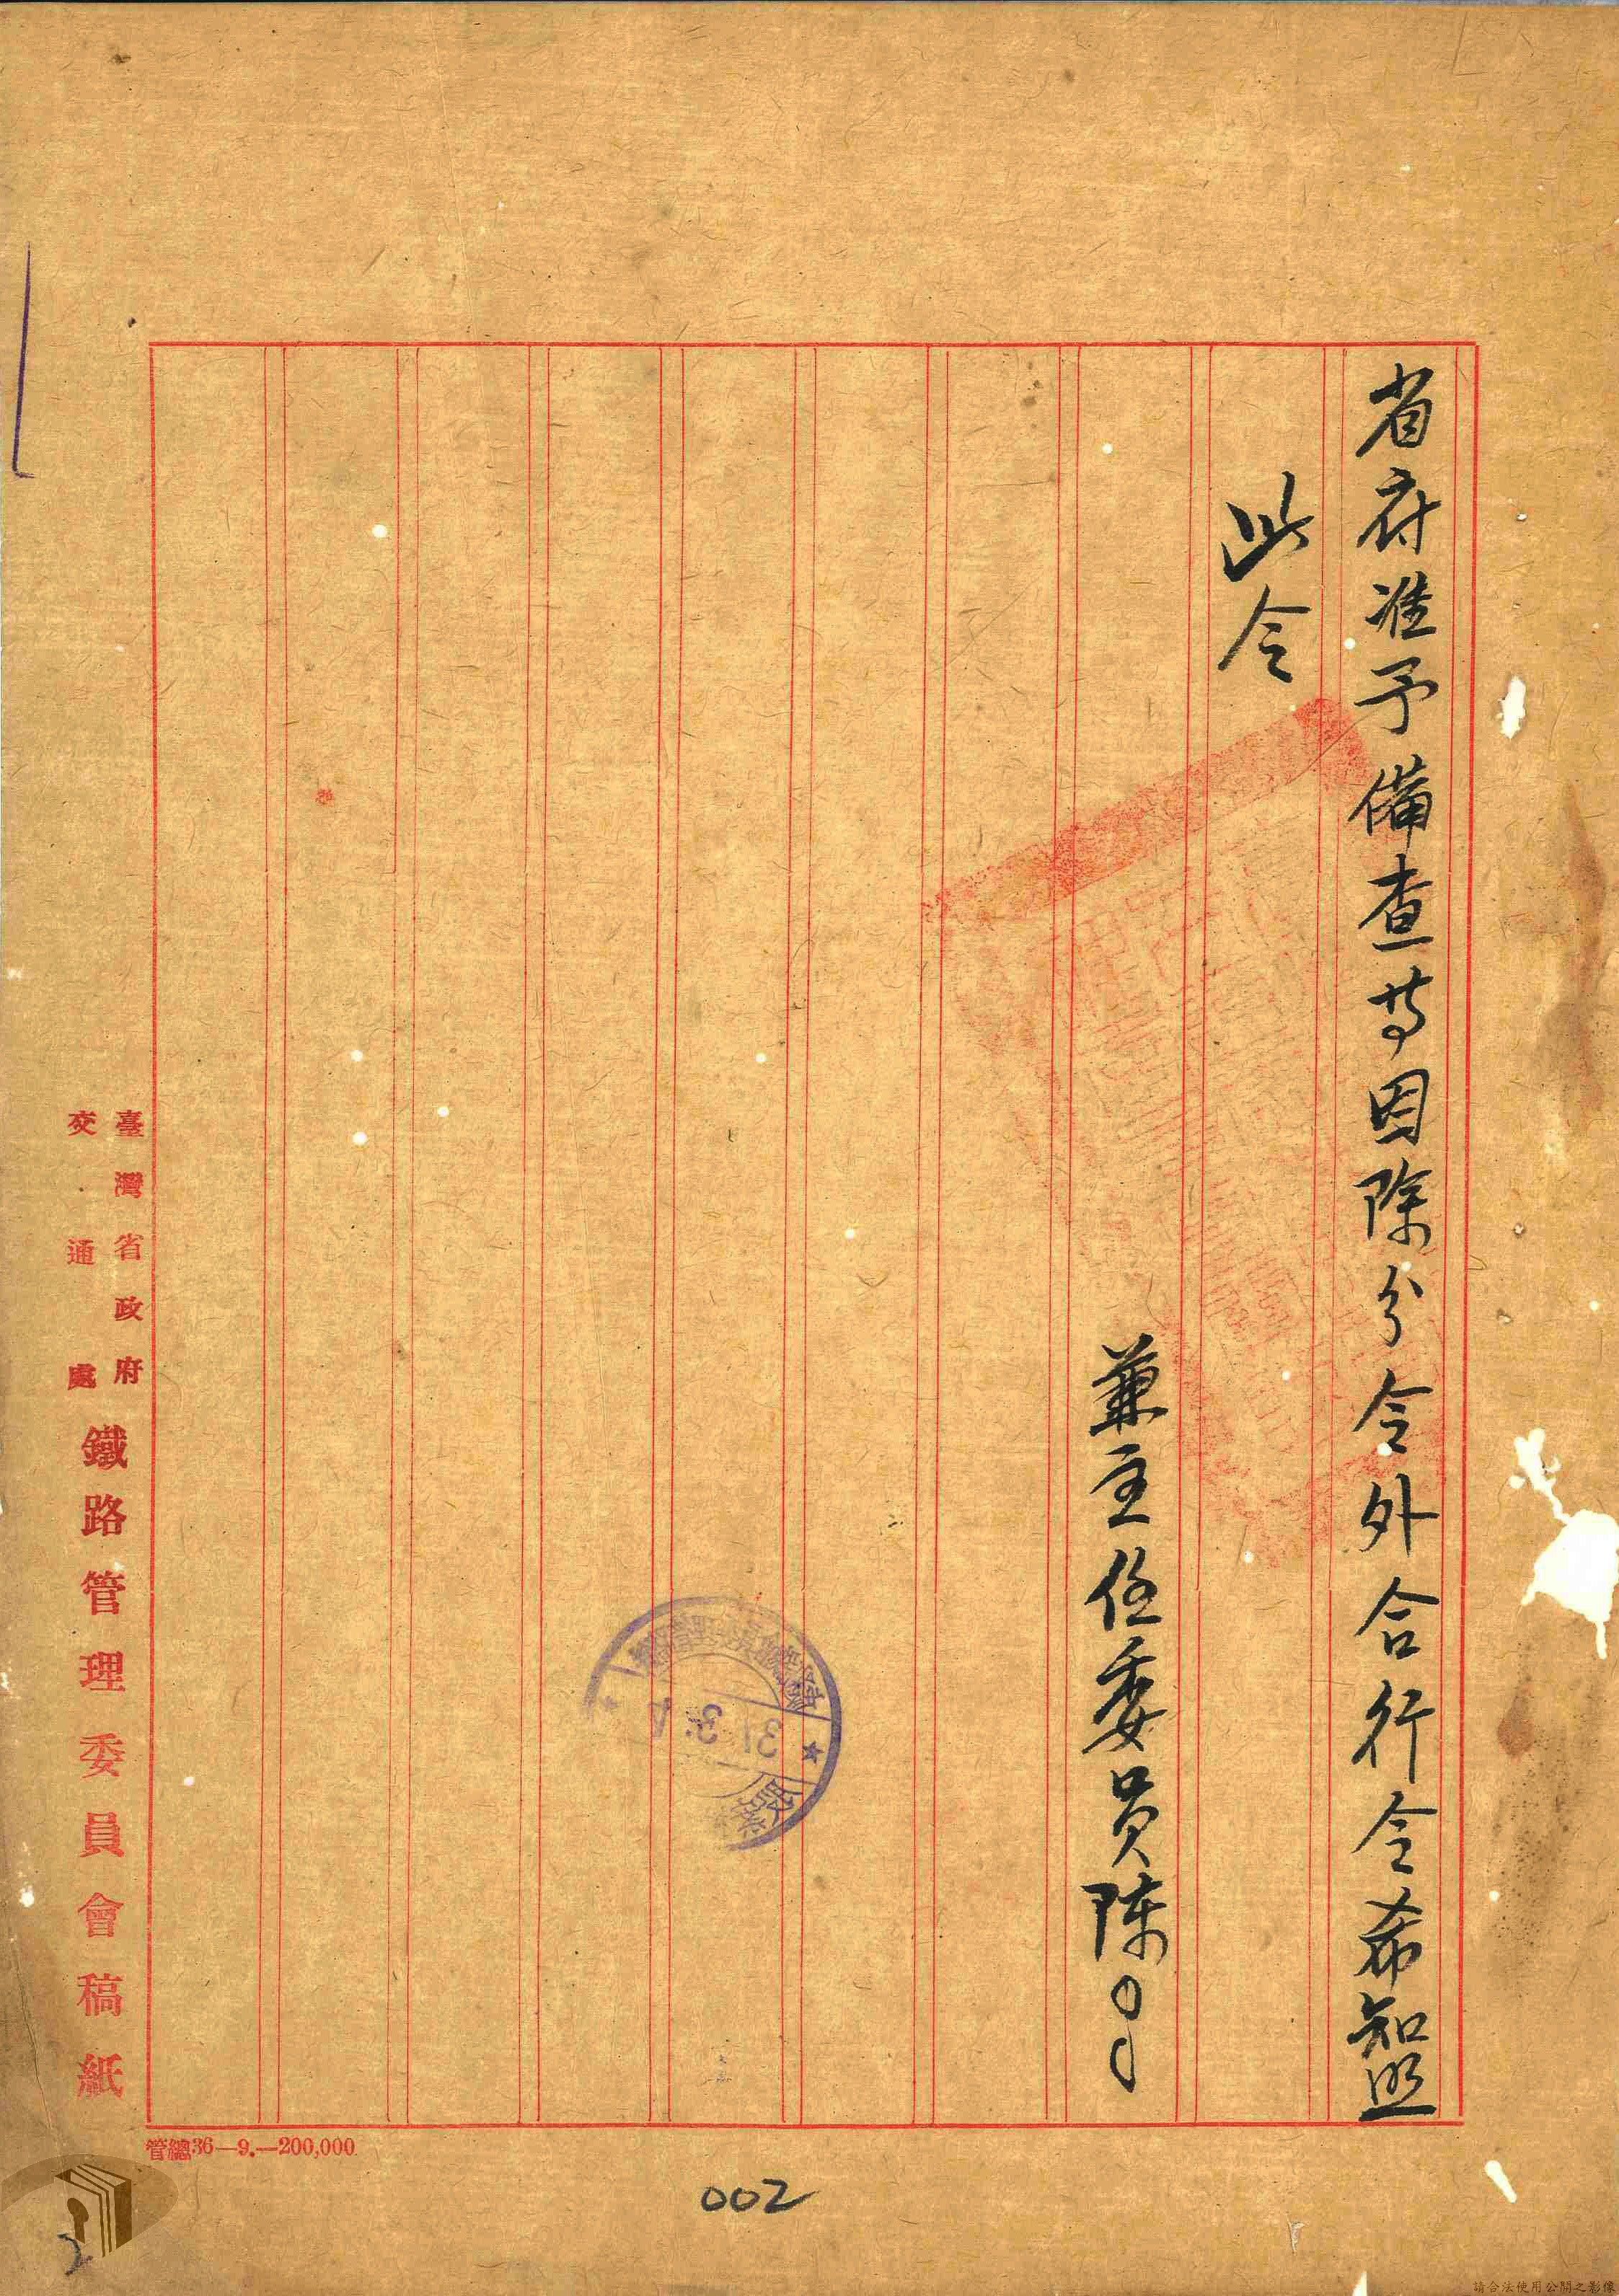 省府准予備查等因除分令外合行令希知照
此令
兼主任委員陳〇〇
臺灣省政府
交通處
鐵路管理委員會稿紙
管總36—9.—200,000
002
2
請合法使用公開之影像